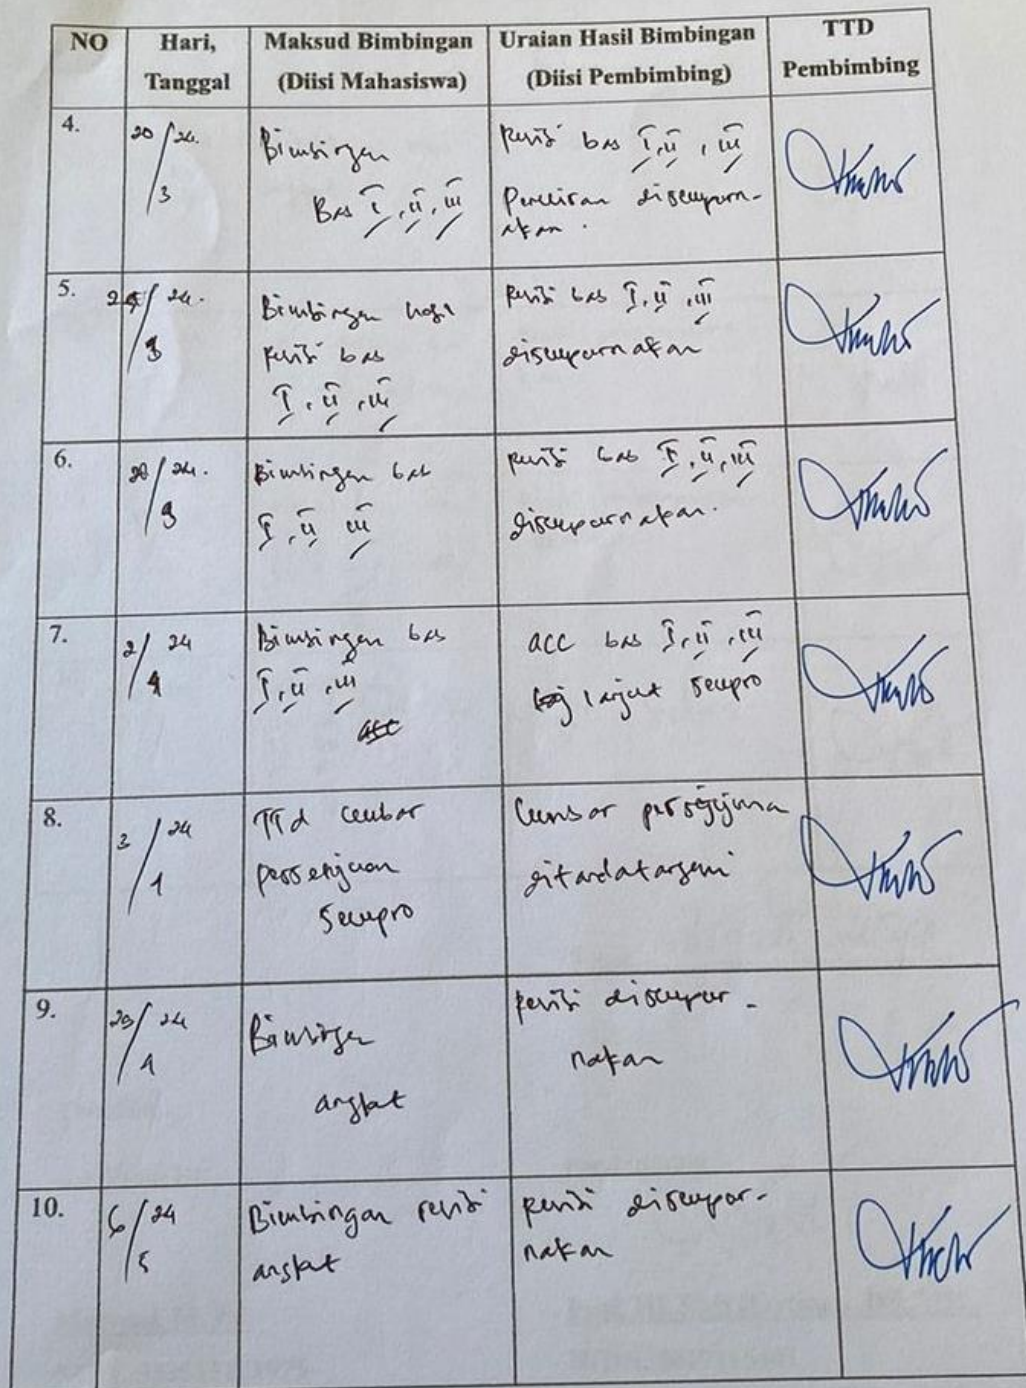 NO Hari, Tanggal Maksud Bimbingan (Diisi Mahasiswa) Uraian Hasil Bimbingan (Diisi Pembimbing) TTD Pembimbing
4. 20/24. 3
Bimbingan
Bab I, II, III
Revisi bab I, II, III
Penulisan disempurn-
akan.
5. 24.
Bimbingan hasil
revisi bab
I, II, III
Revisi bab I, II, III
disempurnakan
6. 24. 3
Bimbingan bab
I, II III
revisi bab I, II, III
disempurnakan.
7. 2/24 4
Bimbingan bab
I, II, III
acc
acc bab I, II, III
lanjut sempro
8. 3/24
TTd lembar
persetujuan
sempro
Lembar
ditandatangani
9. 24
Bimbingan
angket
Revisi disempur-
nakan
10. 6/24 5
Bimbingan revisi
angket
revisi disempur-
nakan